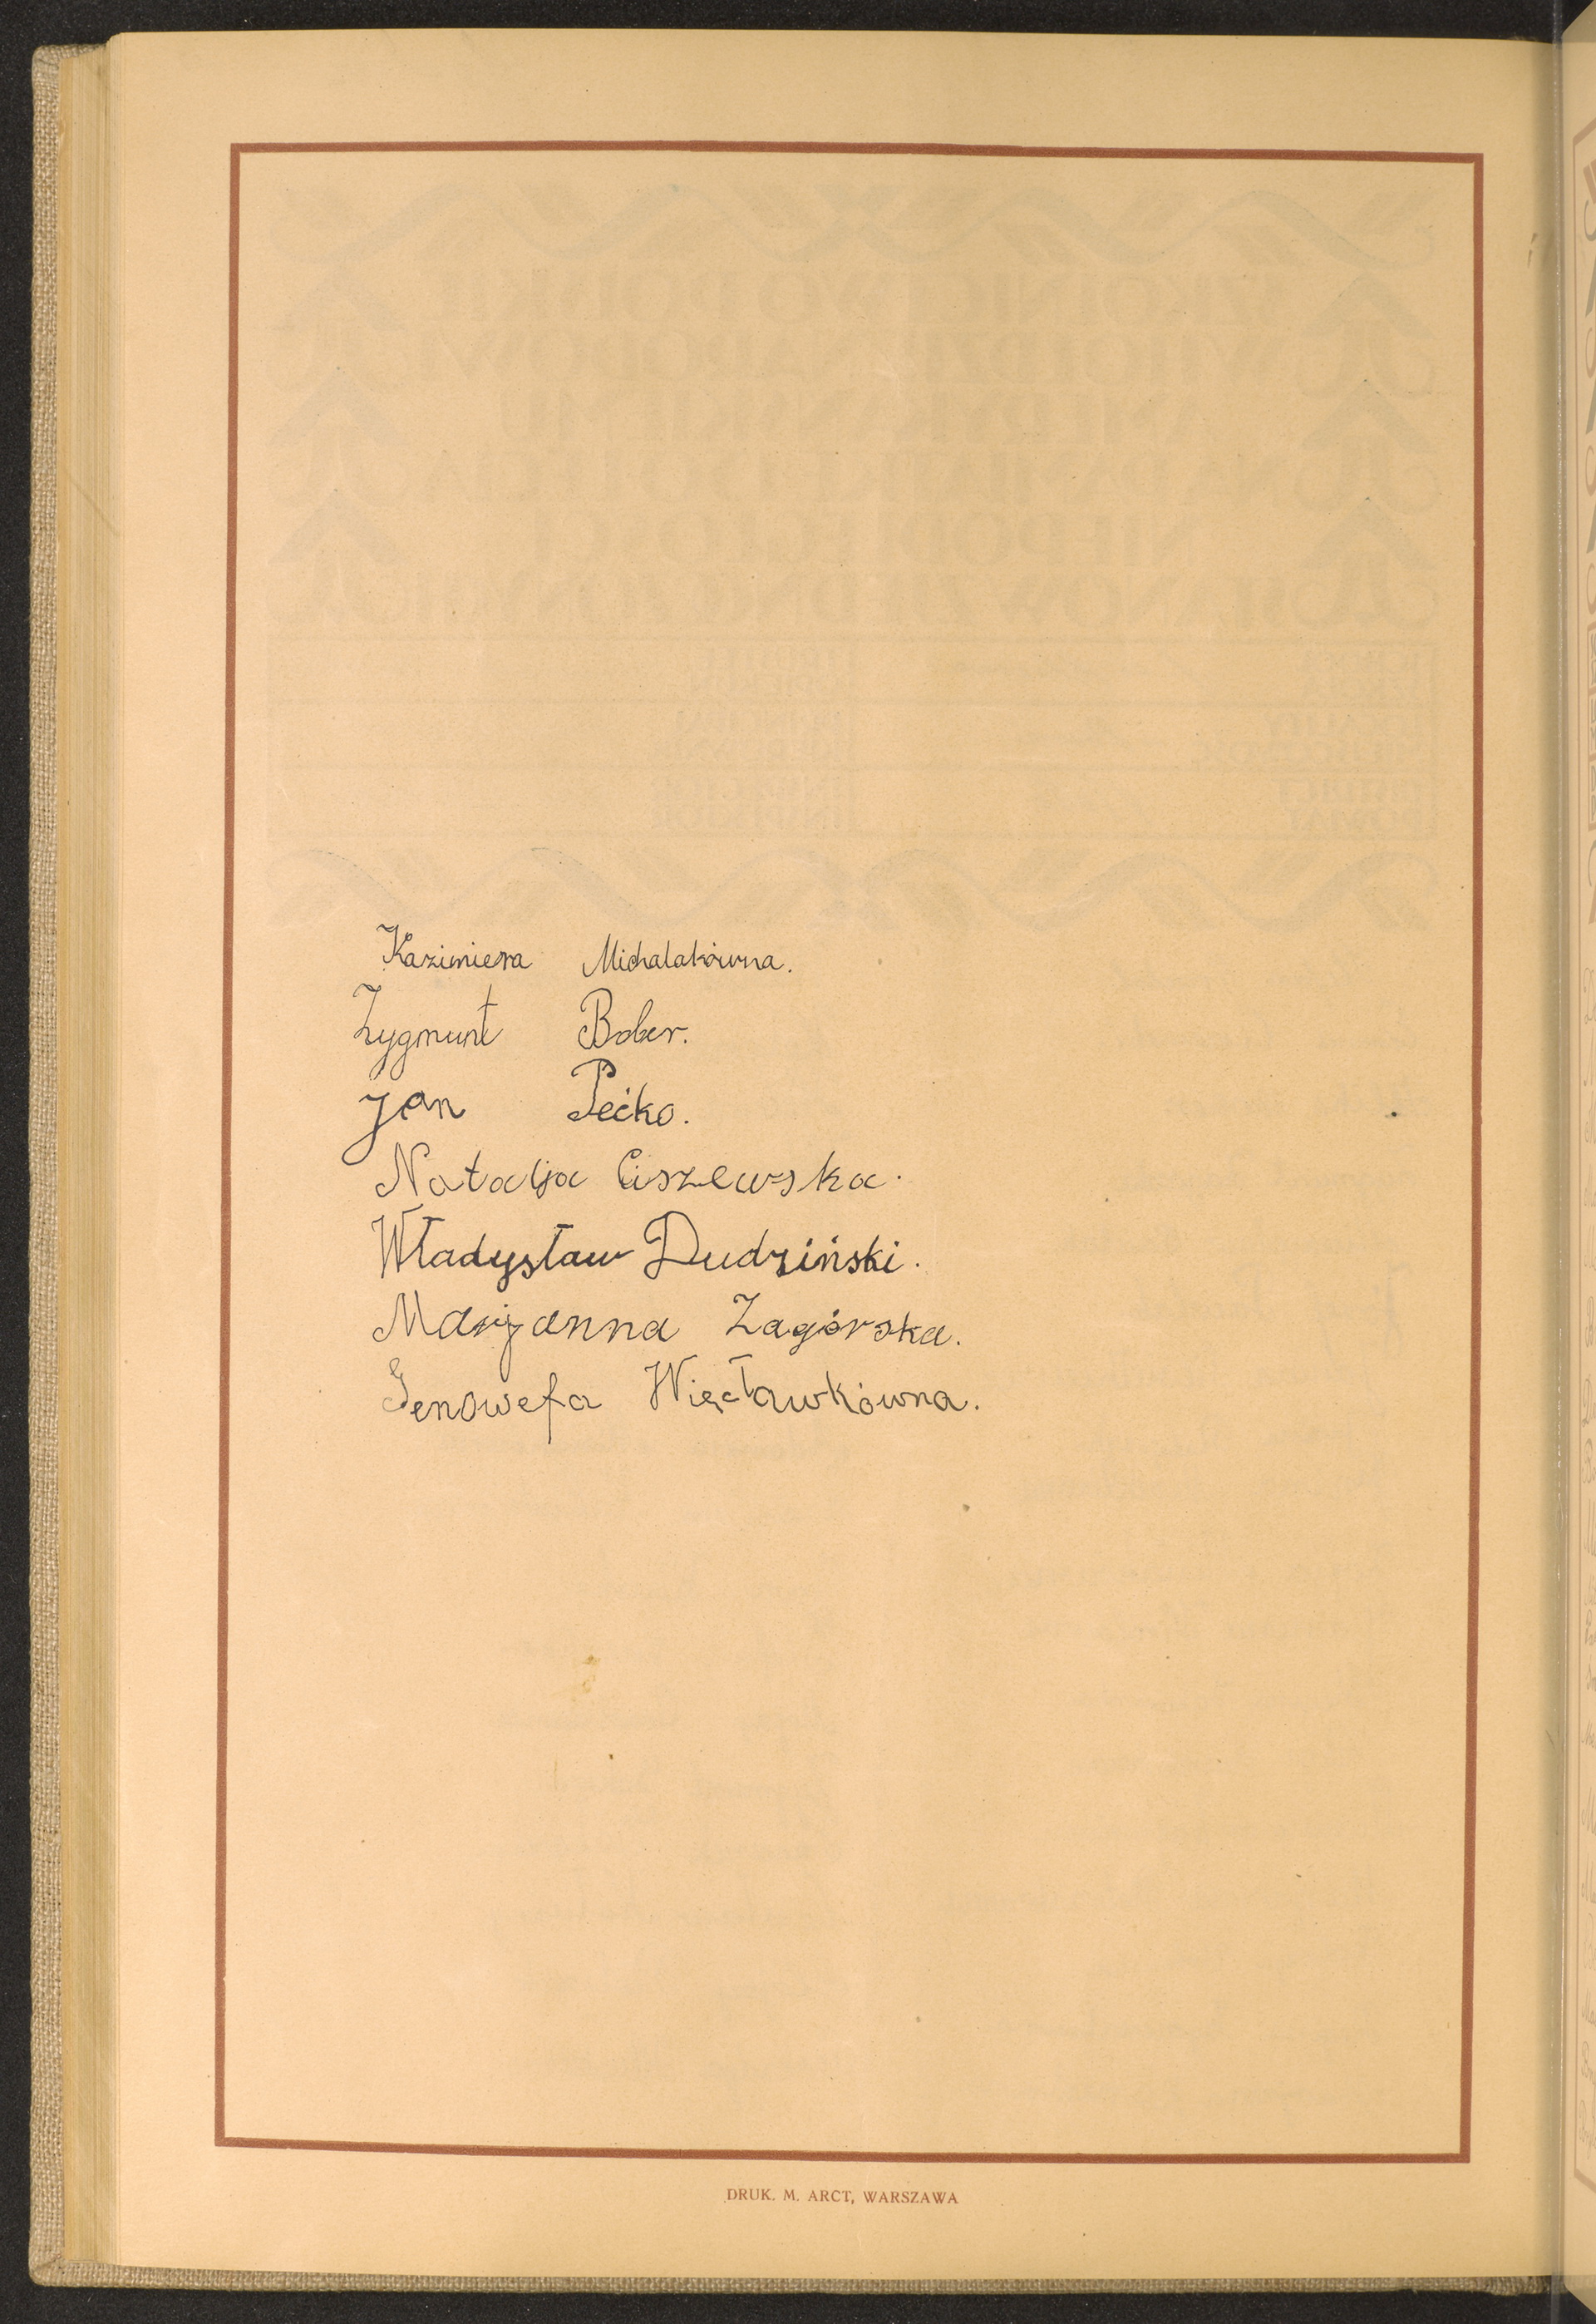 Kazimiera Michalakówna.
Zygmunt Bober.
Jan Pećko.
Natalja Ciszewska.
Władysław Dudziński.
Marjanna Zagórska.
Genowefa Więcławkówna.
DRUK. M. ARCT, WARSZAWA